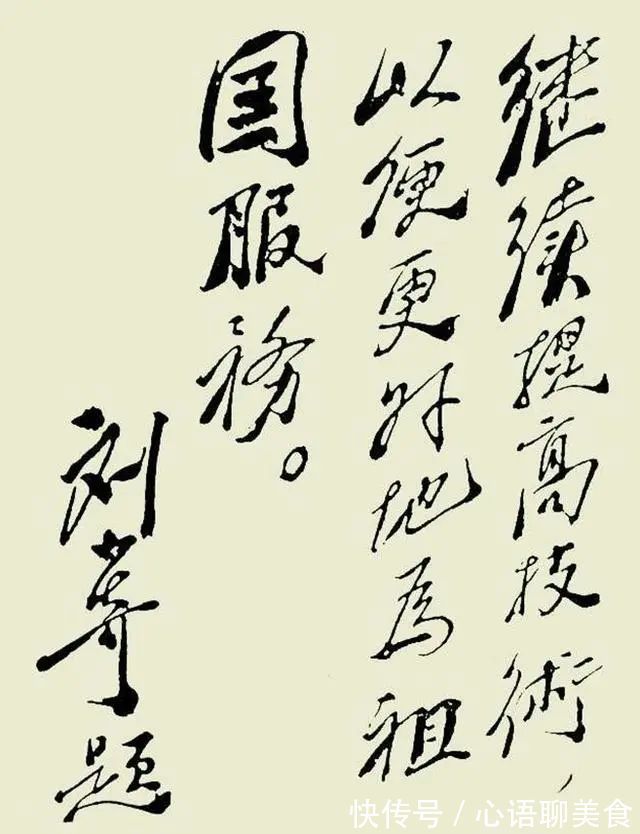 继续提高技術，
以便更好地為祖
国服務。
刘少奇题
快传号／心语聊美食